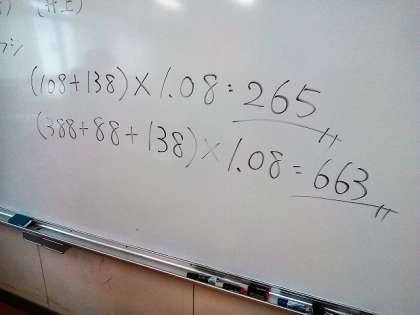 (108+138)×1.08=265
(388+88+138)×1.08=663